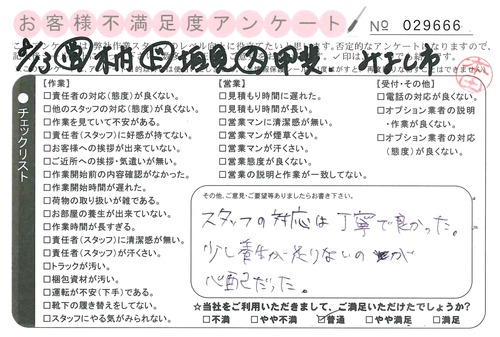 お客様不満足度アンケート
№ 029666
みよし市
チェックリスト
【作業】
□責任者の対応(態度)が良くない。
□他のスタッフの対応(態度)が良くない。
□作業を見ていて不安がある。
□責任者(スタッフ)に好感が持てない。
□お客様への挨拶が出来ていない。
□ご近所への挨拶・気遣いが無い。
□作業開始前の内容確認がなかった。
□作業開始時間が遅れた。
□荷物の取り扱いが雑である。
□お部屋の養生が出来ていない。
□作業時間が長すぎる。
□責任者(スタッフ)に清潔感が無い。
□責任者(スタッフ)が汗くさい。
□トラックが汚い。
□梱包資材が汚い。
□運転が不安(下手)である。
□靴下の履き替えをしてない。
□スタッフにやる気がみられない。
【営業】
□見積もり時間に遅れた。
□見積もり時間が長い。
□営業マンに清潔感が無い。
□営業マンが煙草くさい。
□営業マンが汗くさい。
□営業態度が良くない。
□営業の説明と作業が一致してない。
【受付・その他】
□電話の対応が良くない。
□オプション業者の説明
・作業が良くない。
□オプション業者の対応
(態度)が良くない。
その他、ご意見・ご要望等ありましたらお書き下さい。
スタッフの対応は丁寧で良かった。
少し養生が足りないのが
心配だった。
☆当社をご利用いただきまして、ご満足いただけたでしょうか?
□不満 □やや不満 ☑普通 □やや満足 □満足